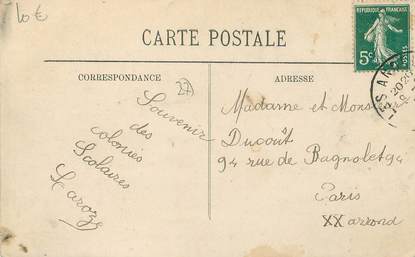 10€
CARTE POSTALE
RÉPUBLIQUE FRANÇAISE
5c
POSTES
CORRESPONDANCE
27
ADRESSE
Souvenir
des
colonies
Scolaires
Laroze
Madame et Mons
Ducoût
94 rue de Bagnolet 94
Paris
XX arrond